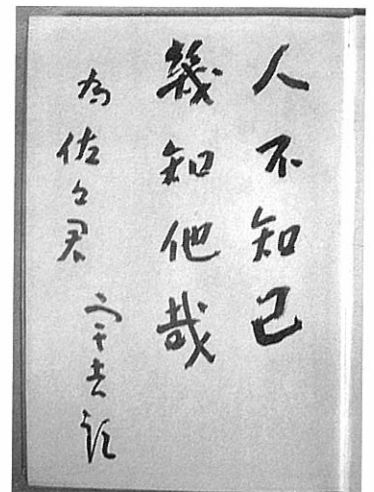 人不知己
幾知他哉
為佐々君
宇吉記